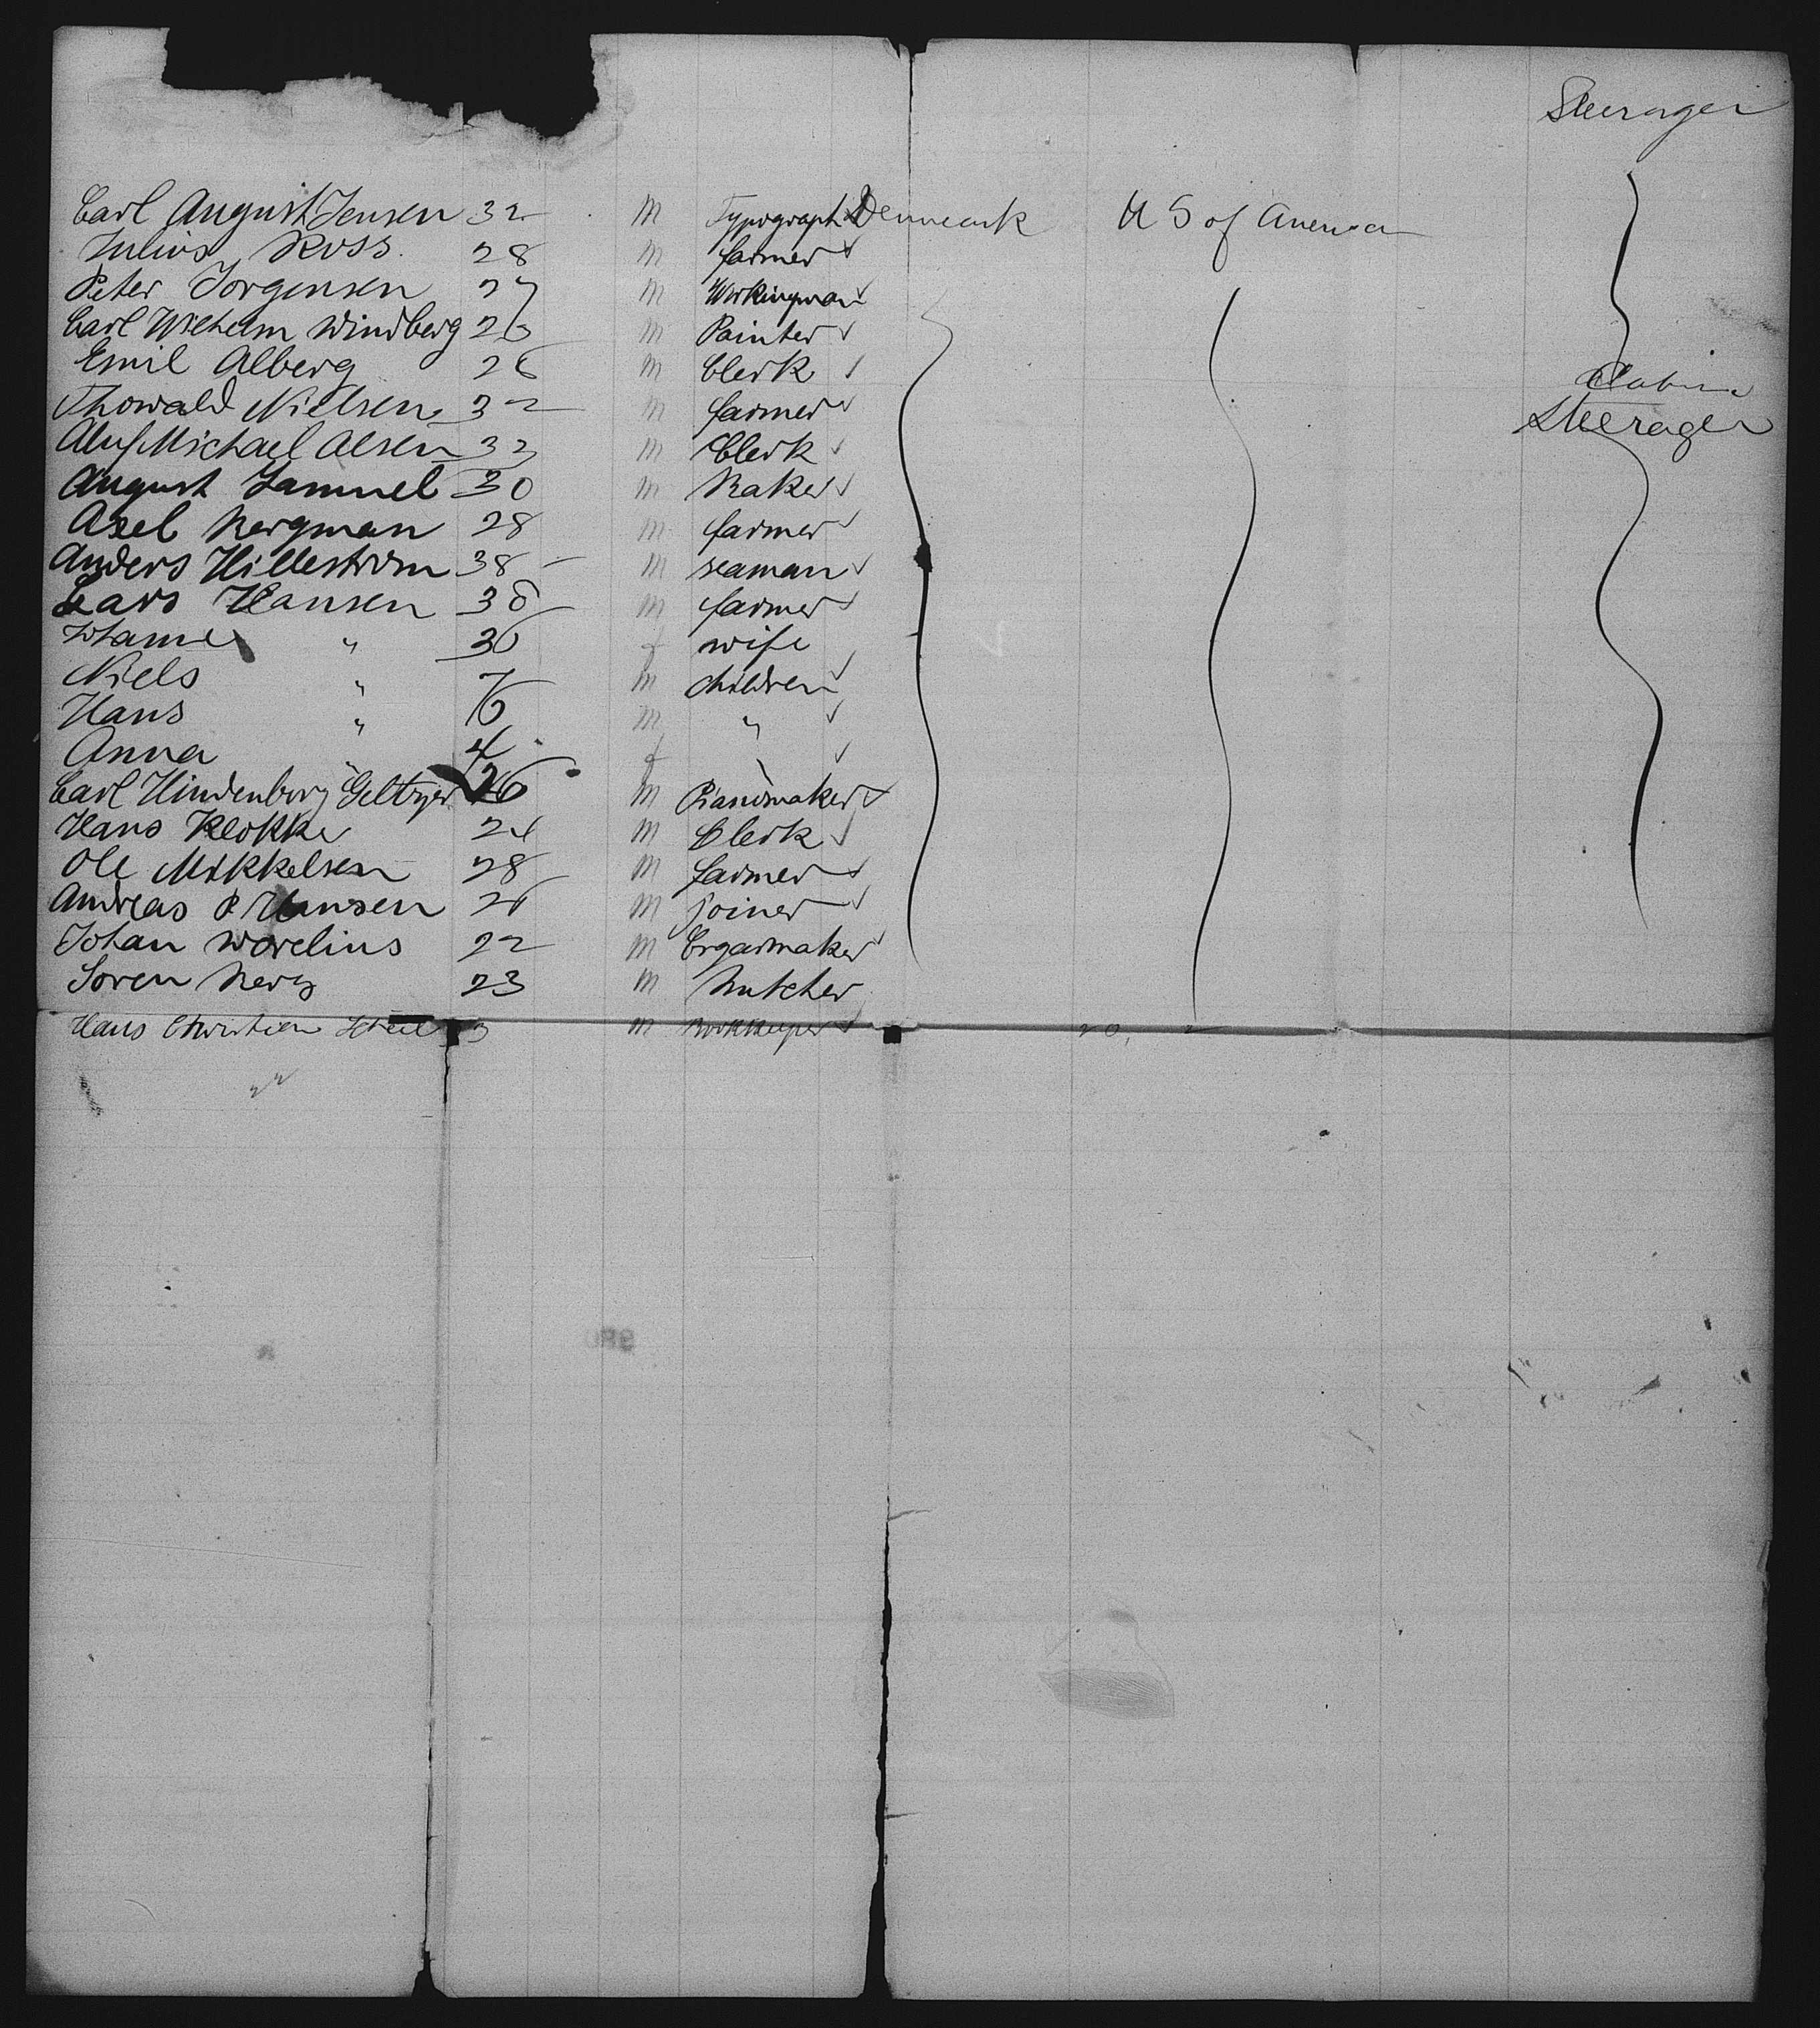 Steerager
Carl August Jensen 32 m Typograph Denmark U S of America
Julius Ross 28 m farmer
Peter Jorgensen 27 m Workingman
Carl Wilhelm Windberg 26 m Painter
Emil Alberg 26 m Clerk Cabin
Thorvald Nielsen 32 m farmer Steerager
Michael Olsen 33 m Clerk
August Samuel 30 m Baker
Axel Bergman 28 m farmer
Anders Hillestrom 38 m seaman
Lars Hansen 38 m farmer
" 36 f wife
Niels " 7 m children
Hans " 6 m "
Anna " 4 f "
Carl Hindenborg 26 m Pianomaker
Hans Klokke 24 m Clerk
Ole Mikkelsen 28 m farmer
Andreas P Hansen 26 m joiner
Johan Worelius 22 m Cigarmaker
Soren Berg 23 m Butcher
Hans Christian m Bookkeeper
22